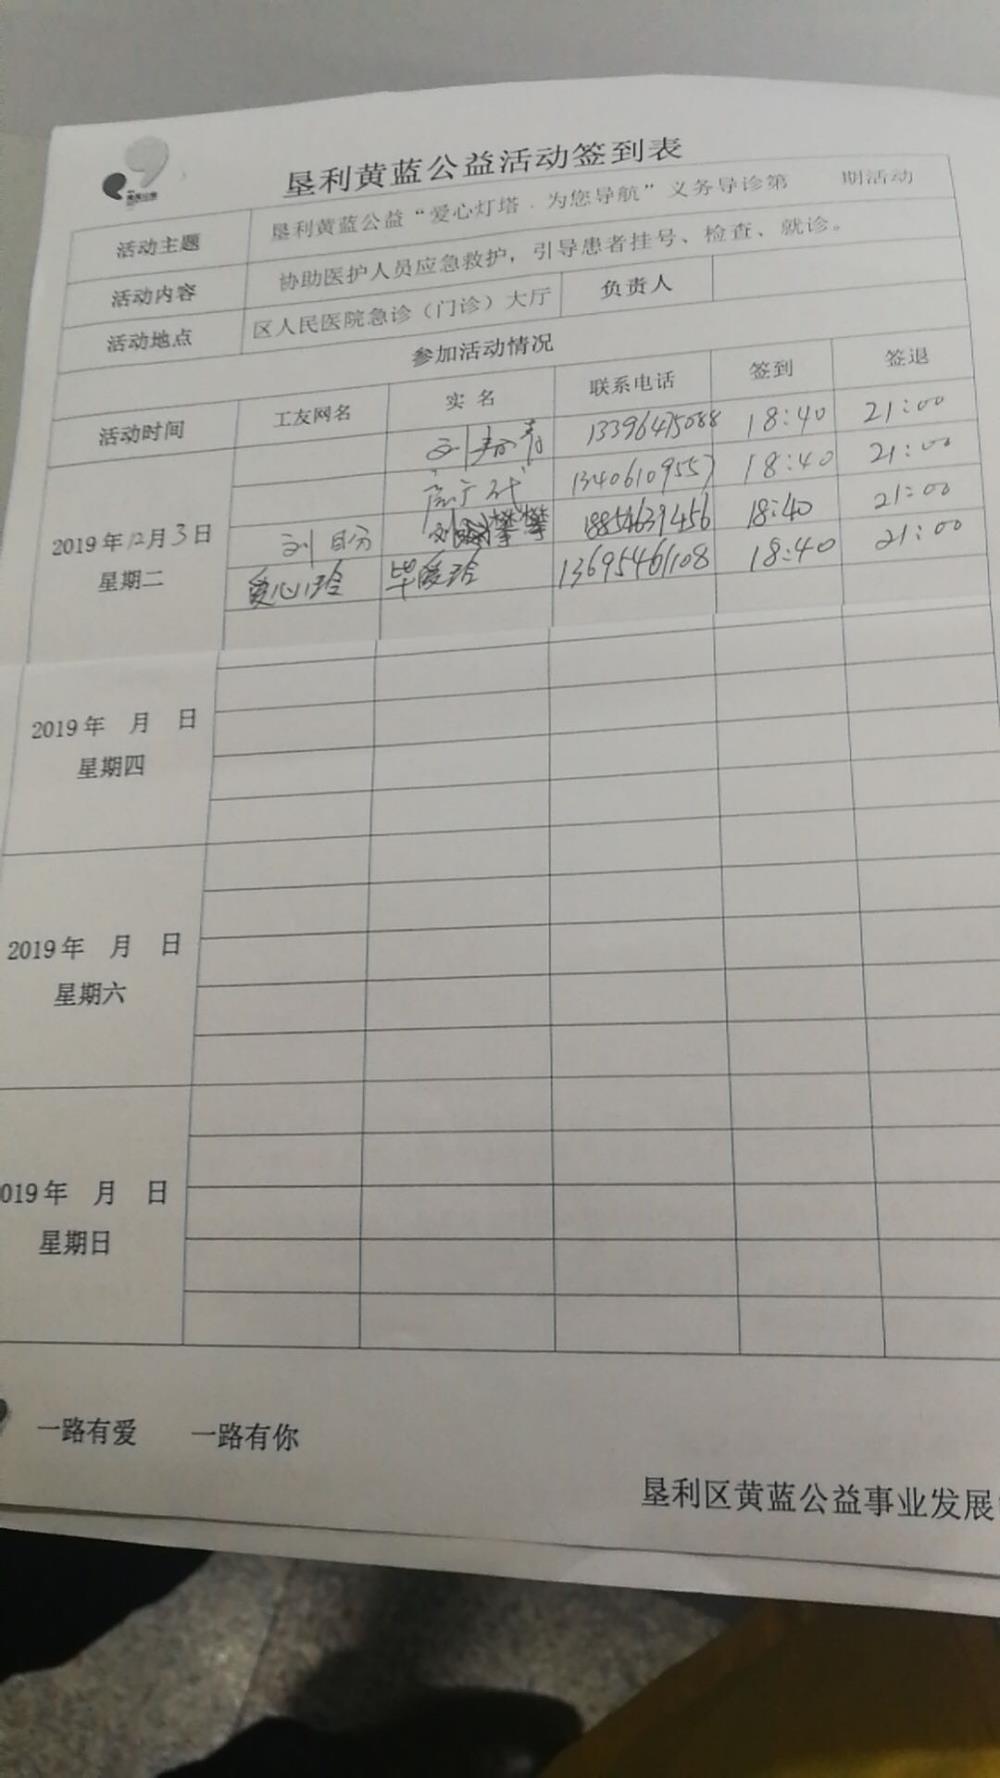 垦利黄蓝公益活动签到表
活动主题 垦利黄蓝公益“爱心灯塔．为您导航”义务导诊第 期活动
活动内容 协助医护人员应急救护，引导患者挂号、检查、就诊。
活动地点 区人民医院急诊（门诊）大厅 负责人
参加活动情况
活动时间 工友网名 实 名 联系电话 签到 签退
刘 18:40 21:00
18:40 21:00
2019年12月3日 刘 攀攀 18854639456 18:40 21:00
星期二 爱心玲 毕爱玲 13695461108 18:40 21:00
2019年 月 日
星期四
2019年 月 日
星期六
019年 月 日
星期日
一路有爱 一路有你
垦利区黄蓝公益事业发展